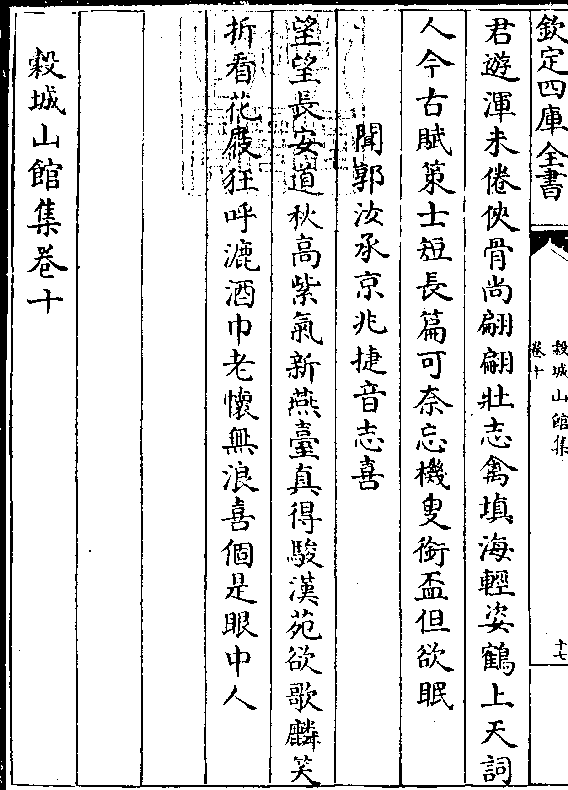 欽定四庫全書
穀城山館集
卷十
十七
君遊渾未倦俠骨尚翩翩壯志禽填海輕姿鶴上天詞
人今古賦策士短長篇可奈忘機叟銜盃但欲眠
聞郭汝承京兆捷音志喜
望望長安道秋高紫氣新燕臺真得駿漢苑欲歌麟笑
折看花屐狂呼漉酒巾老懷無浪喜個是眼中人
穀城山館集卷十